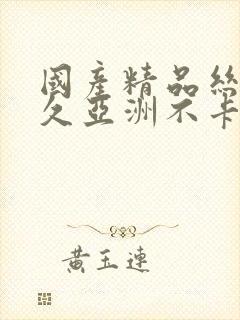 國產精品絲
久亞洲不卡
黃玉連